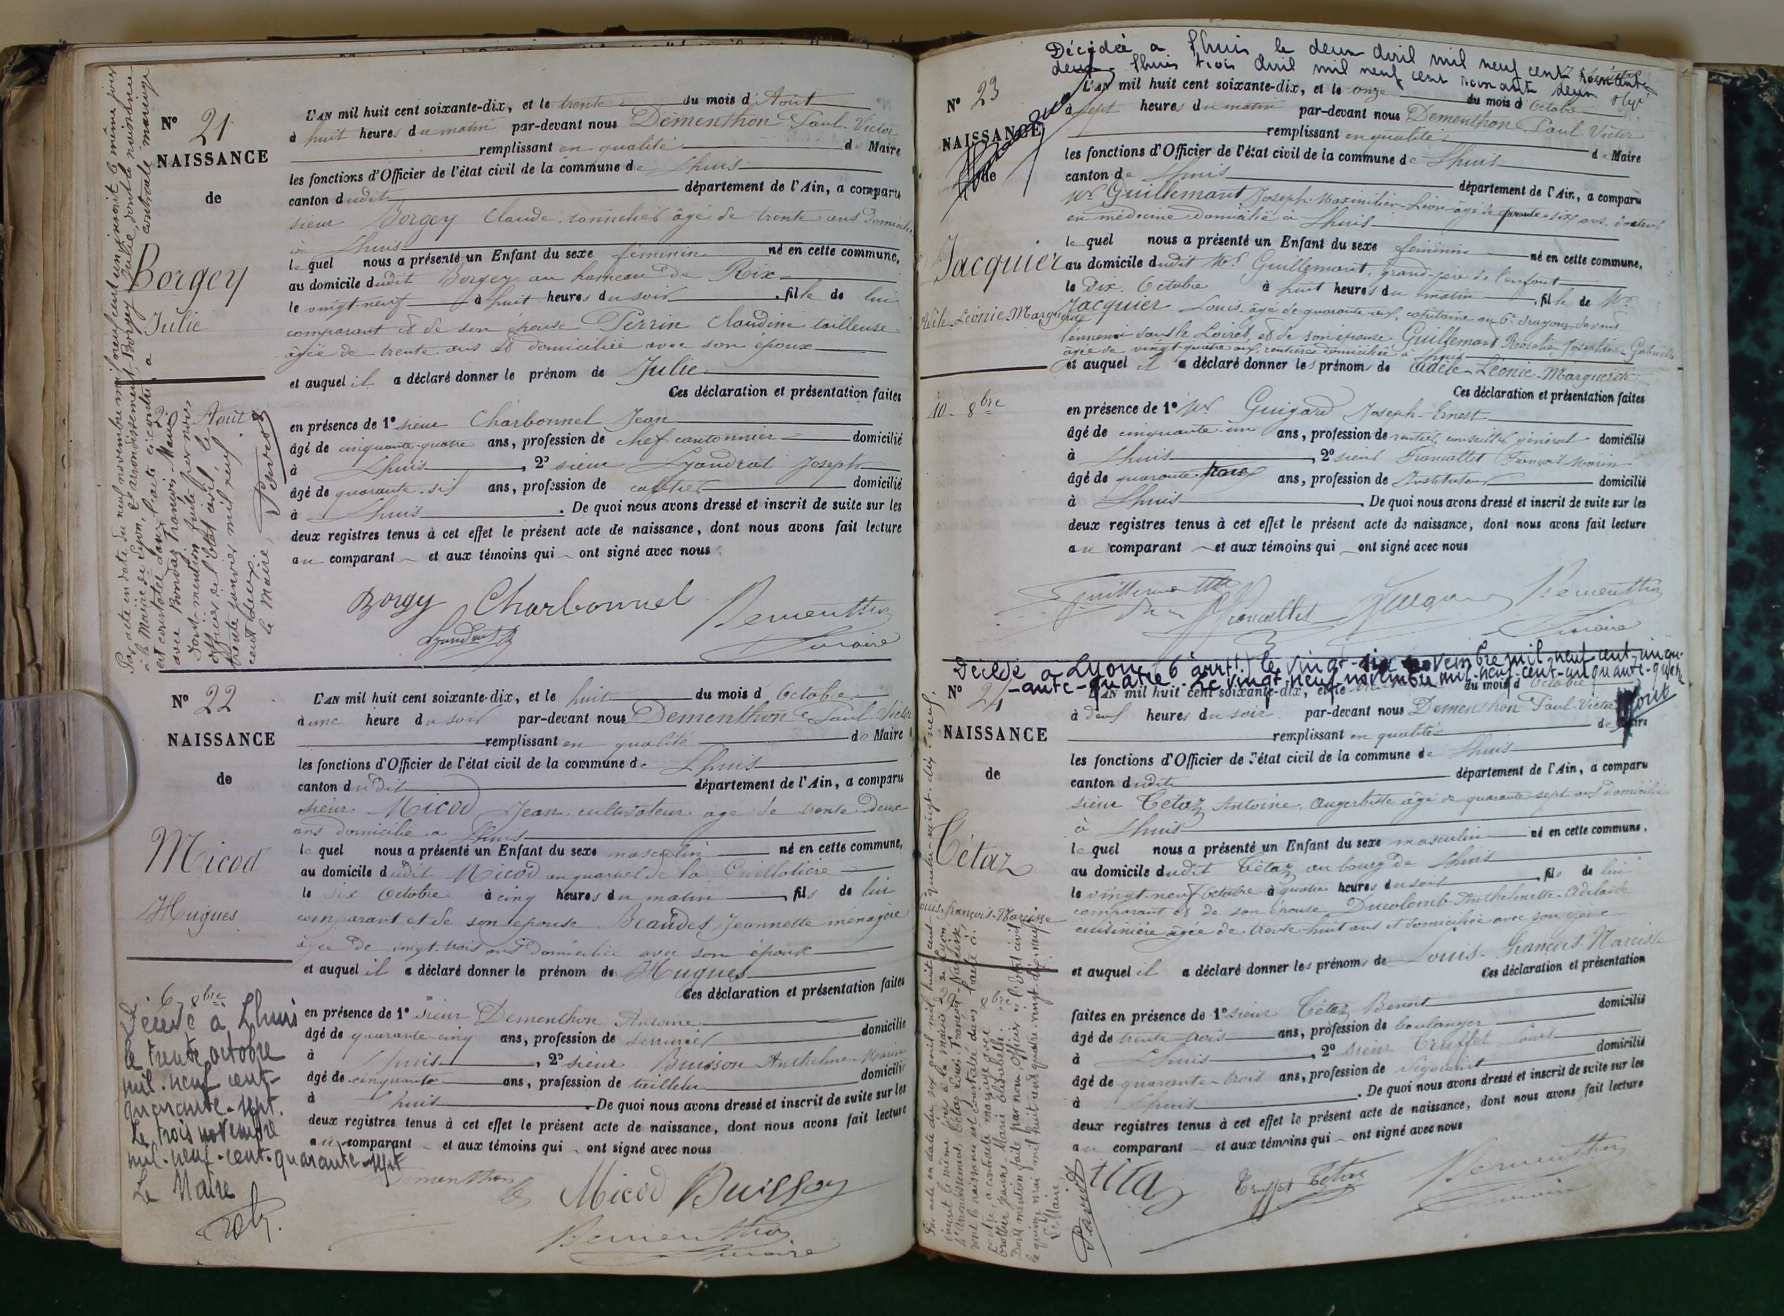 N° 21.
NAISSANCE
de
Borgey
Julie
29 Août
L'AN mil huit cent soixante-dix, et le trente du mois d'Août
à huit heures du matin par-devant nous Dementhon Paul Victor
remplissant en qualité de Maire
les fonctions d'Officier de l'état civil de la commune de Lhuis
canton dudit département de l'Ain, a comparu
sieur Borgey Claude âgé de trente ans domicilié
à Lhuis
le quel nous a présenté un Enfant du sexe féminin né en cette commune,
au domicile dudit Borgey au hameau de Rix
le vingt neuf à huit heures du soir, fille de lui
comparant et de son épouse Perrin Claudine tailleuse
âgée de trente ans et domiciliée avec son époux
et auquel il a déclaré donner le prénom de Julie
Ces déclaration et présentation faites
en présence de 1° sieur Charbonnel Jean
âgé de cinquante-quatre ans, profession de chef cantonnier domicilié
à Lhuis, 2° sieur Lyandrat Joseph
âgé de quarante-six ans, profession de domicilié
à Lhuis. De quoi nous avons dressé et inscrit de suite sur les
deux registres tenus à cet effet le présent acte de naissance, dont nous avons fait lecture
au comparant et aux témoins qui ont signé avec nous
Borgy Charbonnel Dementhon
Lyandrat maire
Par acte en date du neuf novembre mil neuf cent un, inscrit le même jour
à la Mairie de Lyon, 2e arrondissement, Borgey Julie, dont la naissance
est constatée dans l'acte ci-contre, a contracté mariage
avec Bondaz François-Marie
Dont mention faite par nous
officier de l'état civil le
trente janvier mil neuf
cent deux.
Le Maire,
N° 22
NAISSANCE
de
Micod
Hugues
6 8bre
Décédé à Lhuis
le trente octobre
mil-neuf cent-
quarante-sept.
Le trois novembre
mil-neuf-cent-quarante-sept
Le Maire
L'AN mil huit cent soixante-dix, et le huit du mois d'Octobre
à une heure du soir par-devant nous Dementhon Paul Victor
remplissant en qualité de Maire
les fonctions d'Officier de l'état civil de la commune de Lhuis
canton dudit département de l'Ain, a comparu
sieur Micod Jean cultivateur âgé de trente deux
ans domicilié à Lhuis
le quel nous a présenté un Enfant du sexe masculin né en cette commune,
au domicile dudit Micod au quartier de la Guillotière
le six Octobre à cinq heures du matin, fils de lui
comparant et de son épouse Beaudet Jeannette ménagère
âgée de vingt-trois ans domiciliée avec son époux
et auquel il a déclaré donner le prénom de Hugues
Ces déclaration et présentation faites
en présence de 1° sieur Dementhon Antoine
âgé de quarante-cinq ans, profession de serrurier domicilié
à Lhuis, 2° sieur Buisson Anthelme-Marin
âgé de cinquante ans, profession de tailleur domicilié
à Lhuis. De quoi nous avons dressé et inscrit de suite sur les
deux registres tenus à cet effet le présent acte de naissance, dont nous avons fait lecture
au comparant et aux témoins qui ont signé avec nous
Dementhon Micod Buisson
Dementhon
maire
Décédée à Lhuis le deux avril mil neuf cent
Lhuis trois avril mil neuf cent soixante deux
N° 23
NAISSANCE
de
Jacquier
Adèle-Léonie-Marguerite
10 - 8bre
L'AN mil huit cent soixante-dix, et le onze du mois d'Octobre
à sept heures du matin par-devant nous Dementhon Paul Victor
remplissant en qualité de Maire
les fonctions d'Officier de l'état civil de la commune de Lhuis
canton de Lhuis département de l'Ain, a comparu
Mr Guillemaut Joseph-Maximilien-Léon âgé de six ans, docteur
en médecine domicilié à Lhuis
le quel nous a présenté un Enfant du sexe féminin né en cette commune,
au domicile dudit Mr Guillemaut, grand-père de l'enfant
le Dix Octobre à huit heures du matin, fille de Mr
Jacquier Louis, âgé de quarante capitaine au 6e dragons devant
l'ennemi dans le Loiret, et de son épouse Guillemaut Rosalie Joséphine-Gabrielle
âgée de vingt-quatre ans, rentière domiciliée à Lhuis
et auquel il a déclaré donner les prénoms de Adèle-Léonie-Marguerite
Ces déclaration et présentation faites
en présence de 1° Mr Guigard Joseph-Ernest
âgé de cinquante-un ans, profession de rentier, conseiller général domicilié
à Lhuis, 2° sieur Francallet François Marin
âgé de quarante ans, profession de Instituteur domicilié
à Lhuis. De quoi nous avons dressé et inscrit de suite sur les
deux registres tenus à cet effet le présent acte de naissance, dont nous avons fait lecture
au comparant et aux témoins qui ont signé avec nous
Guillemaut Francallet Dementhon
maire
Décédé à Lyon (6e arrt.) le vingt-six novembre mil-neuf-cent-cinqu-
-ante-quatre. Le vingt-neuf novembre mil-neuf-cent-cinquante-quatre
N° 24
NAISSANCE
de
Tétaz
Louis-François-Narcisse
29 8bre
L'AN mil huit cent soixante-dix, et le du mois d'Octobre
à deux heures du soir par-devant nous Dementhon Paul Victor
remplissant en qualité de Maire
les fonctions d'Officier de l'état civil de la commune de Lhuis
canton dudit département de l'Ain, a comparu
sieur Tétaz Antoine, aubergiste âgé de quarante sept ans domicilié
à Lhuis
le quel nous a présenté un Enfant du sexe masculin né en cette commune,
au domicile dudit Tétaz au bourg de Lhuis
le vingt-neuf octobre à quatre heures du soir, fils de lui
comparant et de son épouse Ducolomb Anthelmette-Adélaïde
cuisinière âgée de trente huit ans et domiciliée avec son époux
et auquel il a déclaré donner les prénoms de Louis-François-Narcisse
Ces déclaration et présentation
faites en présence de 1° sieur Tétaz Benoit domicilié
âgé de trente trois ans, profession de boulanger
à Lhuis, 2° sieur Truffet Louis domicilié
âgé de quarante-trois ans, profession de
à Lhuis. De quoi nous avons dressé et inscrit de suite sur les
deux registres tenus à cet effet le présent acte de naissance, dont nous avons fait lecture
au comparant et aux témoins qui ont signé avec nous
Truffet Tétaz Dementhon
maire
Par acte en date du six avril mil huit cent quatre-vingt-dix-neuf,
inscrit le même jour à la mairie de Lyon,
arrondissement, Tétaz Louis-François-Narcisse
dont la naissance est constatée dans l'acte ci-
contre, a contracté mariage avec
Marie Elisabeth.
Dont mention faite par nous Officier de l'état civil
le quinze mai mil huit cent quatre vingt-dix-neuf
Le Maire,